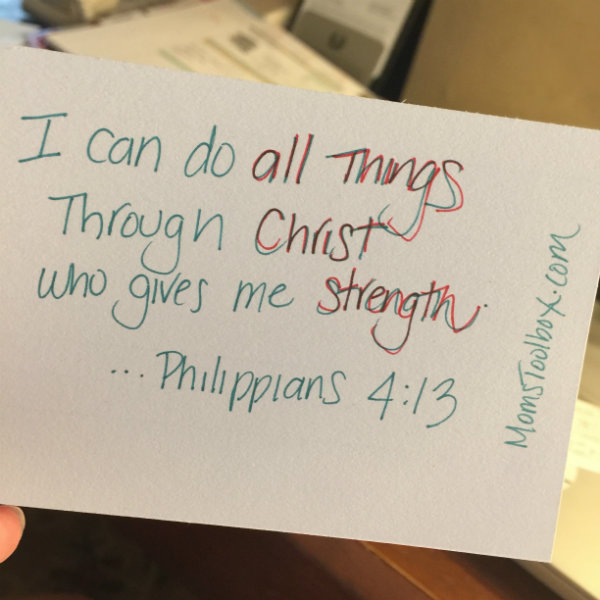 I can do all Things
Through Christ
who gives me strength.
... Philippians 4:13
MomsToolbox.com